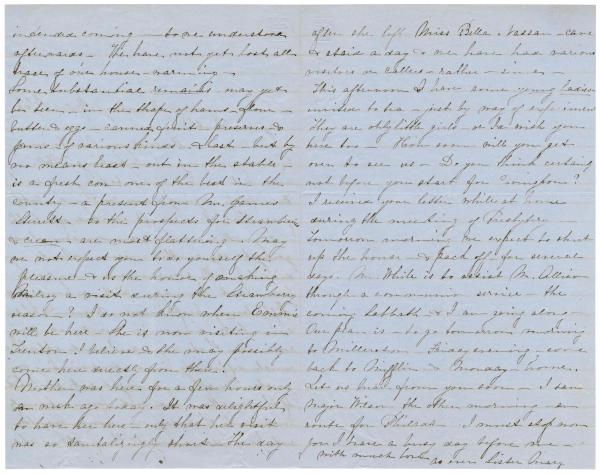 intended coming - so we understood
afterwards - We have not yet lost all
trace of our house-warming -
Some substantial remains may yet
be seen - in the shape of hams - flour -
butter & eggs - canned fruit - preserves &
of various kinds - & last - but by
no means least - out in the stable -
is a fresh cow one of the best in the
country - a present from Mr. James
so the prospects for strawberries
& cream - are most flattering - May
we not expect you to do yourself the
pleasure & us the honor of making
a visit during the Strawberry
season? I do not know when
will be here - She is now visiting in
Trenton I believe & she may possibly
come here directly from there.
Mother was here for a few hours only
a week ago today. It was delightful
to have her here - only that her visit
was so tantalizingly short - The day
after she left Miss Bella Vassan - came
& staid a day & we have had various
visitors or callers - rather - since -
This afternoon I have some young ladies
invited to tea - just by way of
They are only little girls - or I'd wish you
here too - How soon will you get
over to see us - Do you think certainly
not before you start for Covington?
I received your letter while at home
during the meeting of Presbytery
Tomorrow morning we expect to shut
up the house - & pack off for several
days. Mr. White is to assist Mr. Allison
through a communion service - the
coming Sabbath & I am going along -
Our plan is - to go tomorrow morning
to Millerstown - Friday evening - come
back to Mifflin & Monday - home.
Let us hear from you soon - I saw
Major Wilson the other morning - en
route for Philada - I must stop now
for I have a busy day before me -
With much love as ever Sister Mary